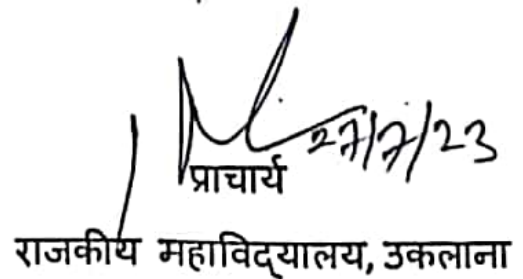 27/7/23
प्राचार्य
राजकीय महाविद्यालय, उकलाना